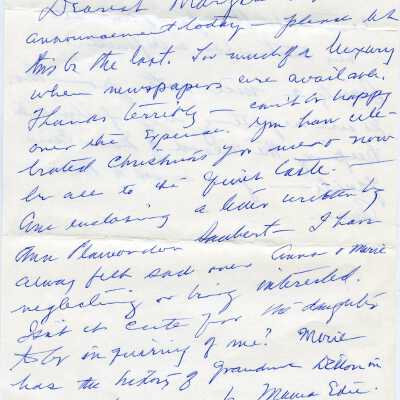 Dearest Marg
announcement today — please let
this be the last. Too much of a luxury
when newspapers are available.
Thanks terribly — can't be happy
over the expense. You have cele-
brated Christmas you must now
be ace to the quiet taste. —
Am enclosing a letter written by
Ann Plawondon Daubert — I have
always felt sad over Anna & Marie
neglecting or being interested.
Isn't it cute for the daughter
to be inquiring of me? Marie
has the history of Grandma
Mama Edie.